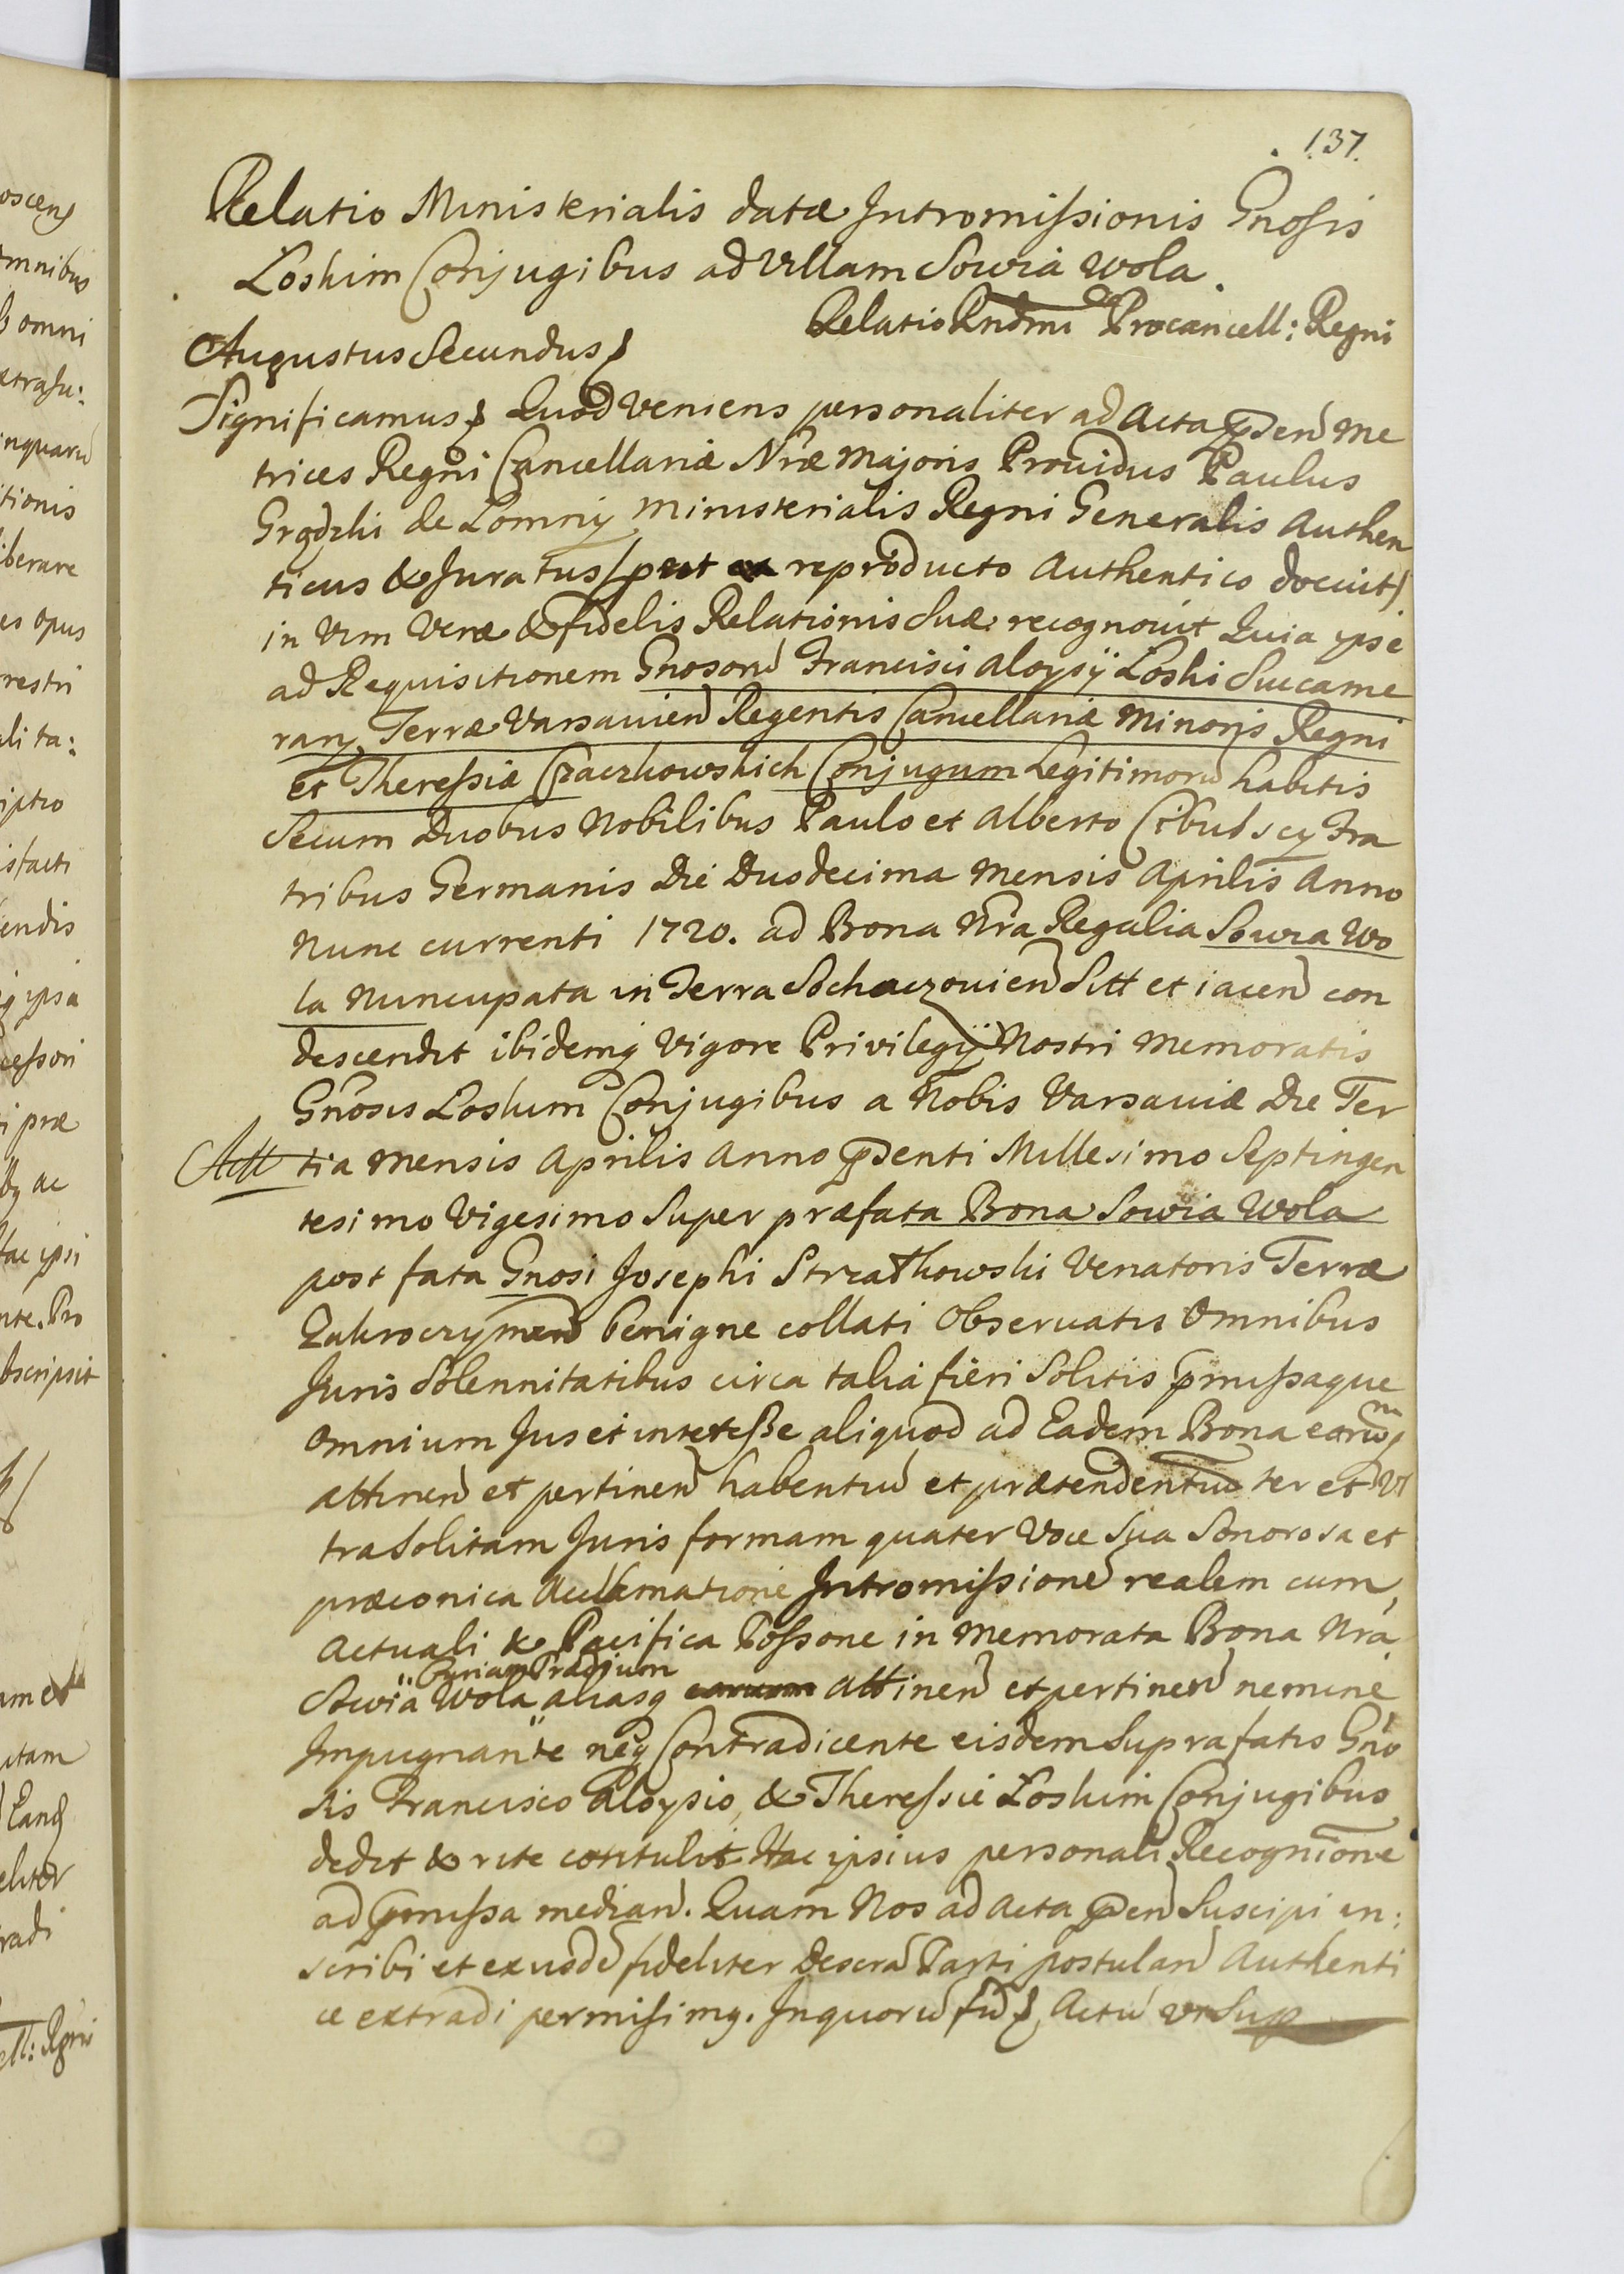 137.
Relatio Ministerialis datæ Intromissionis Gnosis
Loskim Conjugibus ad Villam Sowia Wola.
Relatio Rndmi Procancell: Regni
Augustus Secundus
Significamus Quod Veniens personaliter ad Acta pden Me
trices Regni Cancellariæ Nræ Majoris Providus Paulus
Grodzki de Lomny Ministerialis Regni Generalis Authen
ticus & Juratus /prut ex reproducto Authentico docuit/
in Vim Veræ & fidelis Relationis Suæ recognovit Quia ipse
ad Requisitionem Gnosoru Francisci Aloysij Loski Succame
rarij Terræ Varsavien Regentis Cancellariæ Minoris Regni
et Theressiæ Czaczkowskich Conjugum Legitimoru habitis
Secum Duobus Nobilibus Paulo et Alberto Fra
tribus Germanis Die Duodecima Mensis Aprilis Anno
Nunc currenti 1720. ad Bona Nra Regalia Sowia Wo
la Nuncupata in Terra Sochaczovien Sitt et iacen con
descendit ibidemq Vigore Privilegij Nostri Memoratis
Gnosis Loskim Conjugibus a Nobis Varsaviæ Die Ter
tia Mensis Aprilis Anno pdenti Millesimo Septingen
tesimo Vigesimo Super præfata Bona Sowia Wola
post fata Gnosi Josephi Strzałkowski Venatoris Terræ
Zakroczymen benigne collati Observatis Omnibus
Juris Solennitatibus circa talia fieri Solitis pmissaque
Omnium Jus et interesse aliquod ad Eadem Bona earumq
attinen et pertinen habentiu et prætendentiu ter et Vl
tra Solitam Juris formam quater Voce Sua Sonorosa et
præconica Acclamatione Intromissione realem cum
Actuali & Pacifica Possone in Memorata Bona Nra
Curiam Prædium
Sowia Wola aliasq earum attinen et pertinen nemine
Impugnante neq Contradicente eisdem Suprafatis Gno
sis Francisco Aloysio & Theressiæ Loskim Conjugibus
dedit & rite contulit Hac ipsius personali Recognitione
ad pmissa median. Quam Nos ad Acta pden Suscipi in:
scribi et exusde fideliter Parti postulan Authenti
ce extradi permisimq. Inquoru fid Actu vt Sup